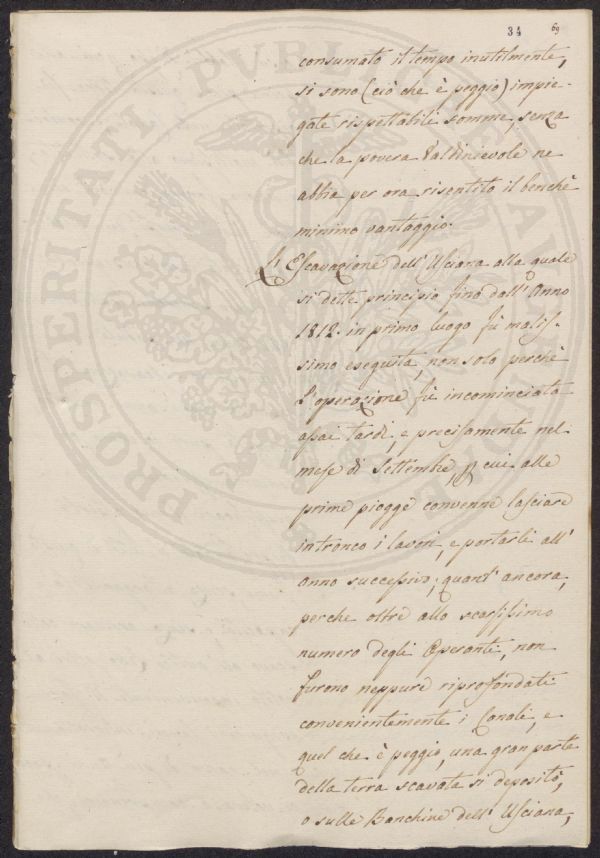 34 69
consumato il tempo inutilmente,
si sono (ciò che è peggio) impie-
gate rispettabili somme, senza
che la povera Valdinievole ne
abbia per ora risentito il benchè
minimo vantaggio.
L'Escavazione dell'Usciana alla quale
si dette principio fino dall'Anno
1812. in primo luogo fù malis-
simo eseguita, non solo perchè
l'operazione fù incominciata
assai tardi, e precisamente nel
mese di Settembre, p cui alle
prime piogge convenne lasciare
in tronco i lavori, e portarli all'
anno successivo; quant'ancora,
perche oltre allo scarsissimo
numero degli Operanti, non
furono neppure riprofondati
convenientemente i Canali, e
quel che è peggio, una gran parte
della terra scavata si depositò,
o sulle Banchine dell'Usciana,
PROSPERITATI PVBLICAE